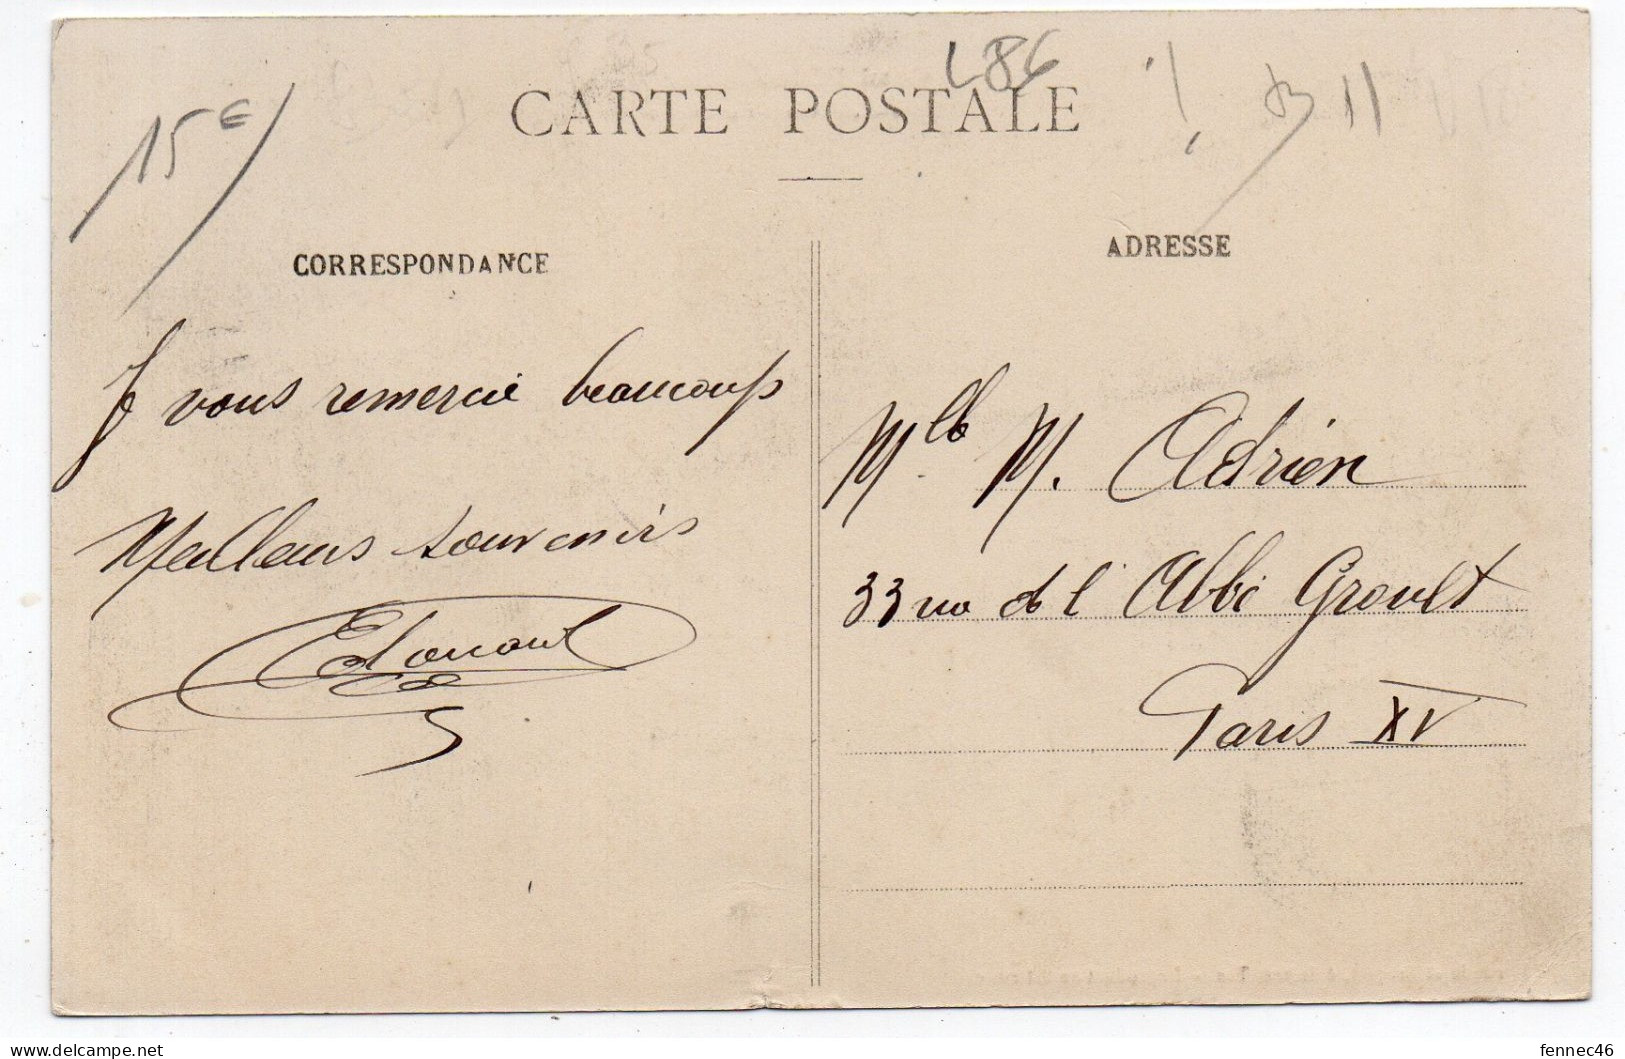 L86
15€
B 11
CARTE POSTALE
CORRESPONDANCE
Je vous remercie beaucoup
Meilleurs souvenirs
Edouard
ADRESSE
Mlle M. Adrien
33 rue de l'Abbé Groult
Paris XV
delcampe.net
fennec46